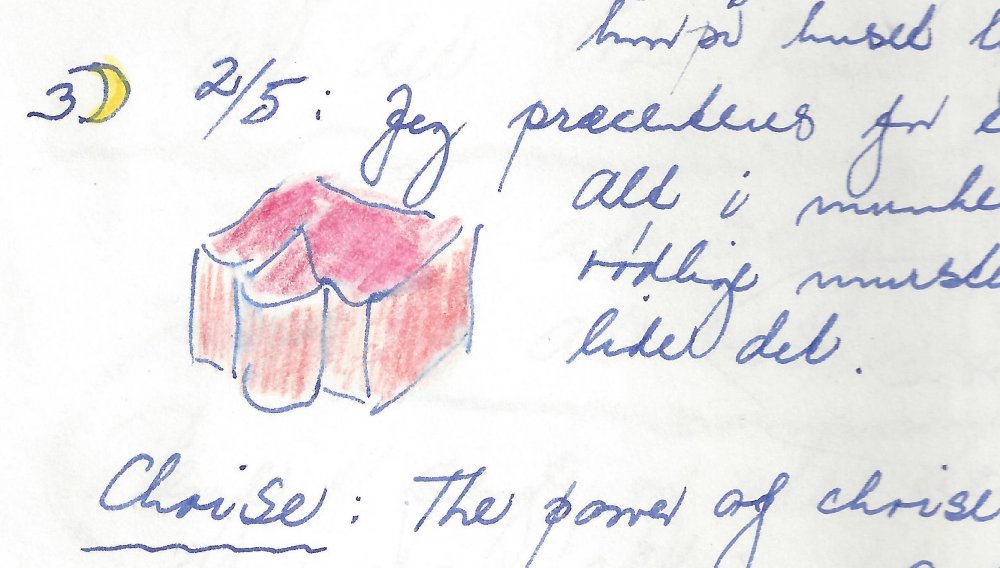 huset
3 2/5 : Jeg præsenteres for
Alt i munke
rødlige murste
lidel det.
Choise : The power of choise